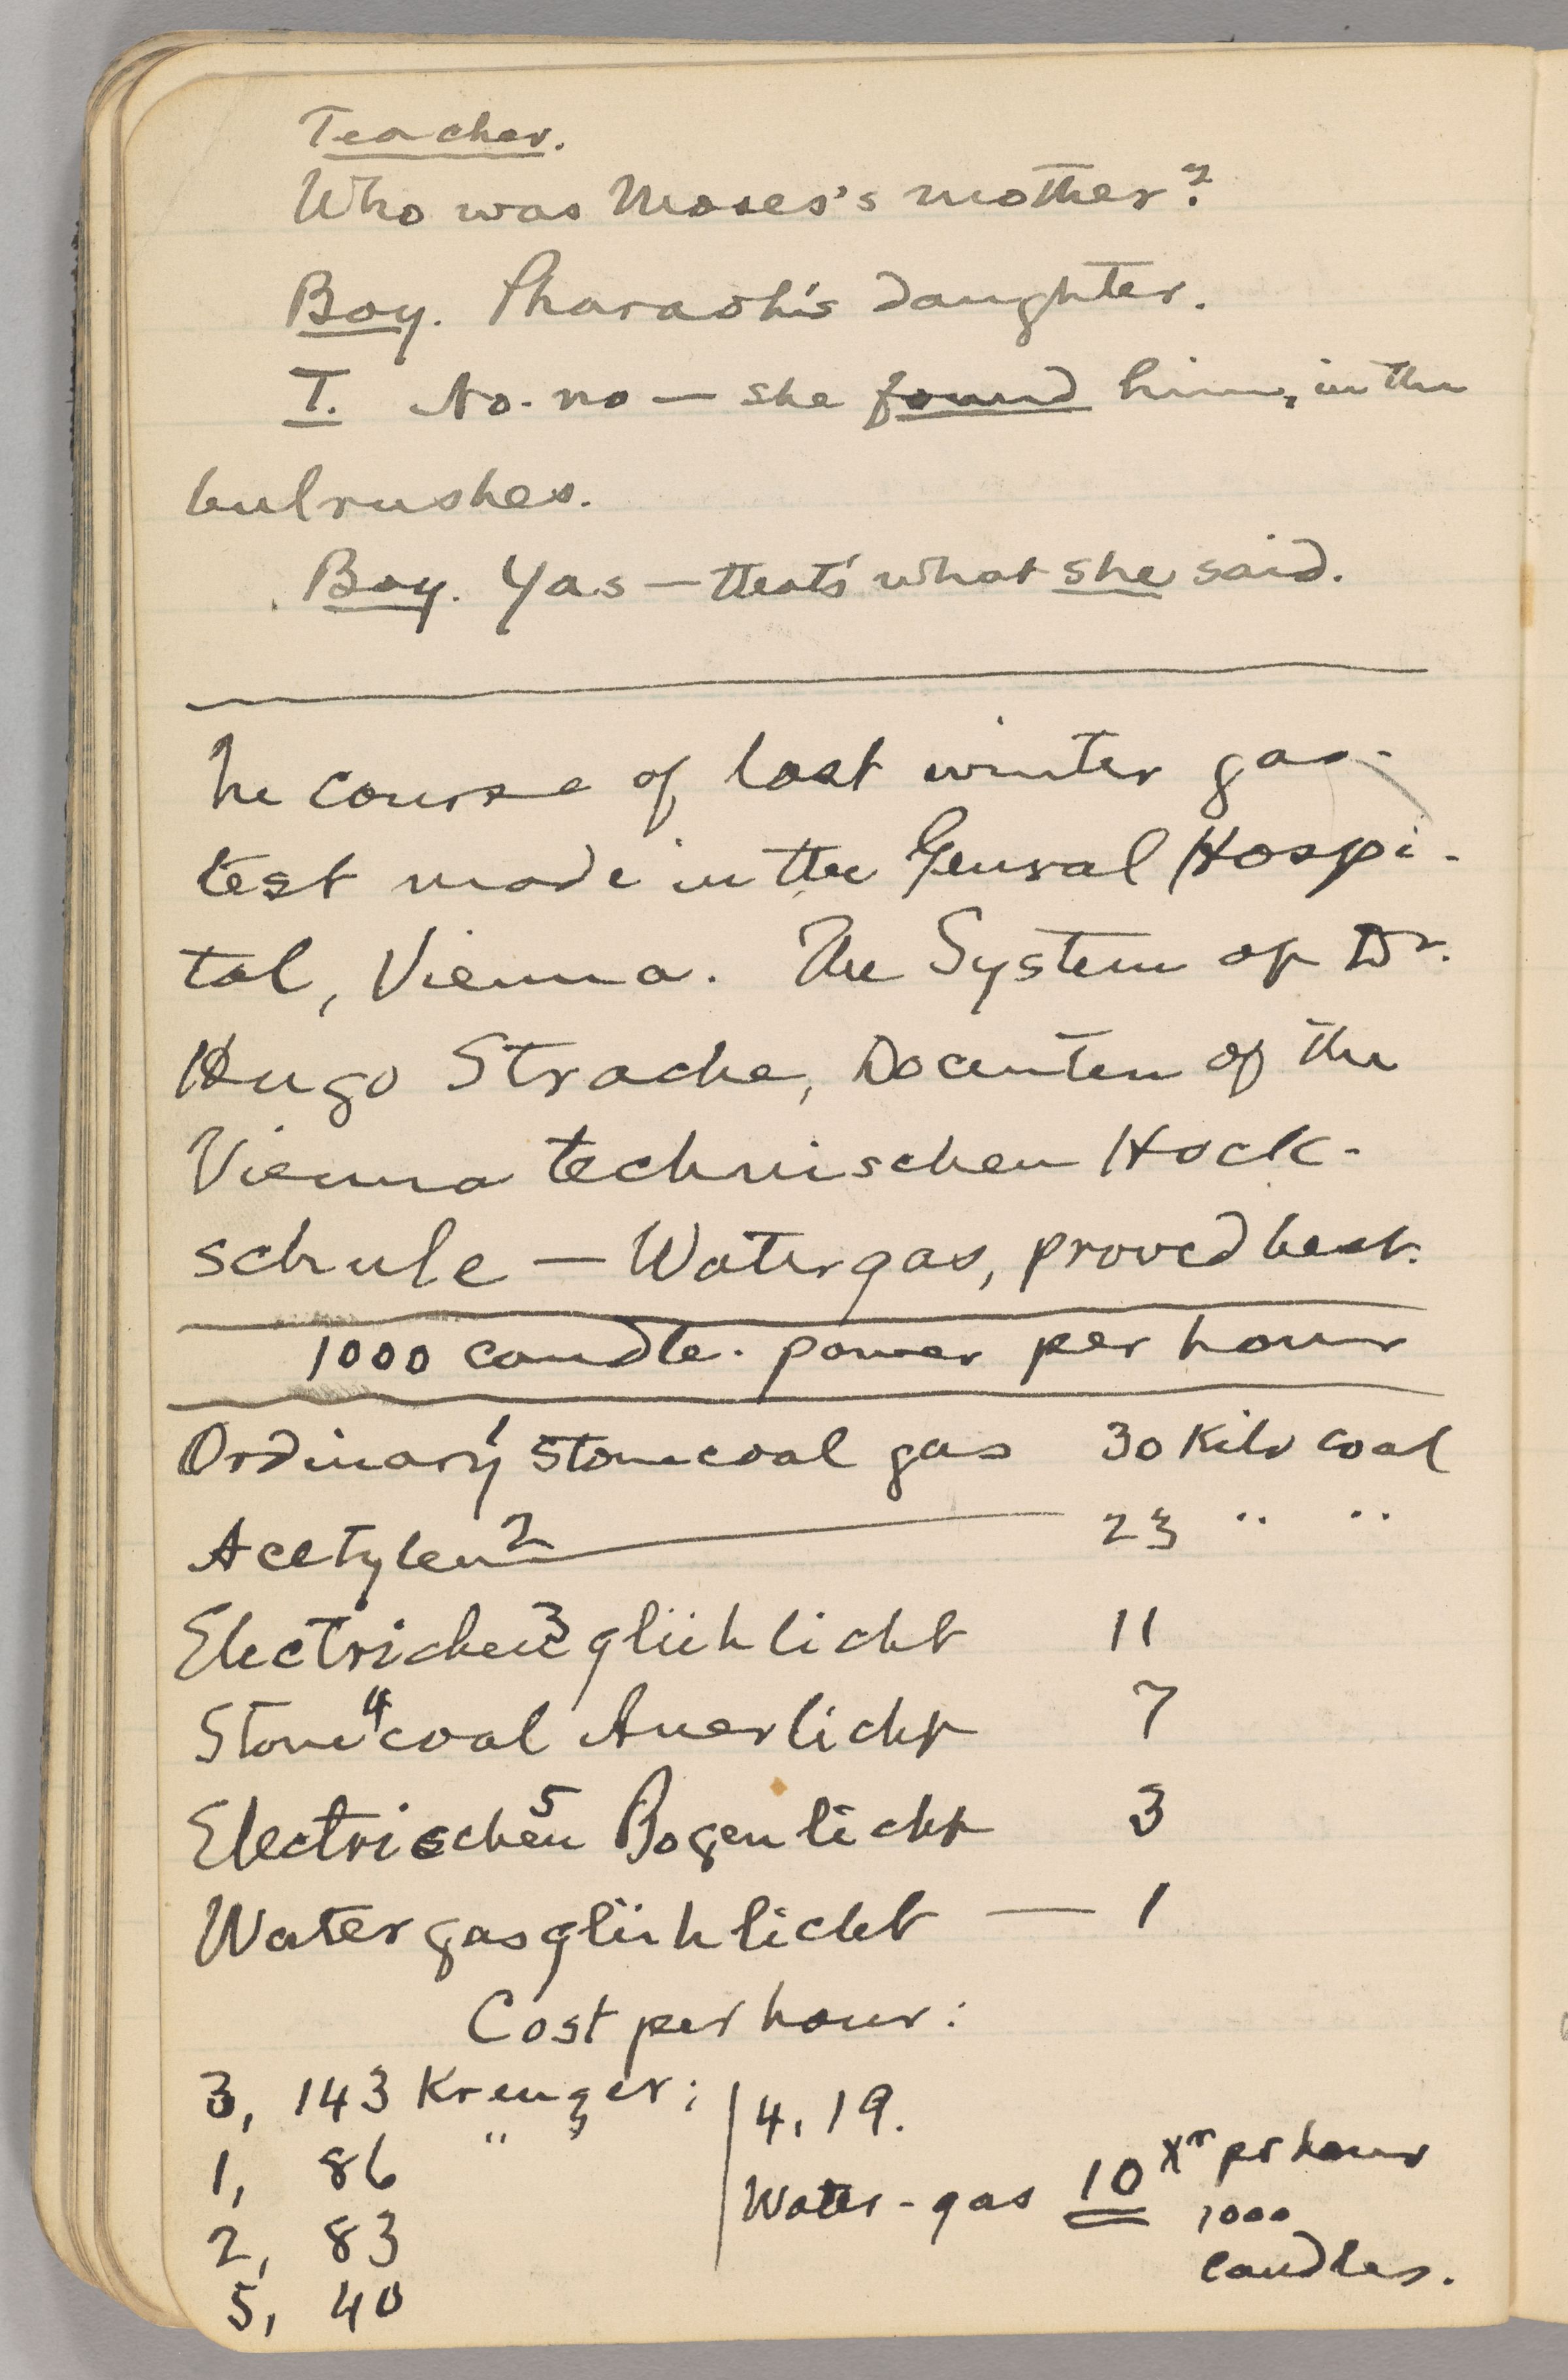 Teacher.
Who was Moses's mother?
Boy. Pharaoh's daughter.
T. No-no — she found him, in the
bulrushes.
Boy. Yas — that's what she said.
In course of last winter gas-
test made in the General Hospi-
tal, Vienna. The System of Dr.
Hugo Strache, Docenten of the
Vienna technischen Hock-
schule — Watergas, proved best.
1000 candle-power per hour
Ordinary 1 Stonecoal gas 30 Kilo coal
Acetylen 2 — 23 " "
Electrichen 3 glühlicht 11
Stone 4 coal Auerlicht 7
Electrischen 5 Bogenlicht 3
Watergasglühlicht — 1
Cost per hour:
3, 143 Kreuzer;
1, 86 " "
2, 83
5, 40
4, 19.
Water-gas 10 Xr pr hour
1000
candles.